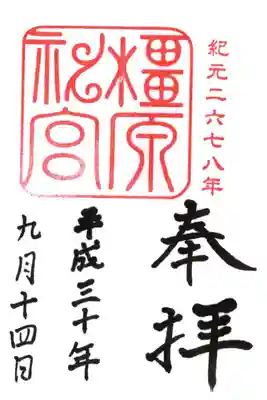 紀元二六七八年
橿原
神宮
奉拝
平成三十年
九月十四日